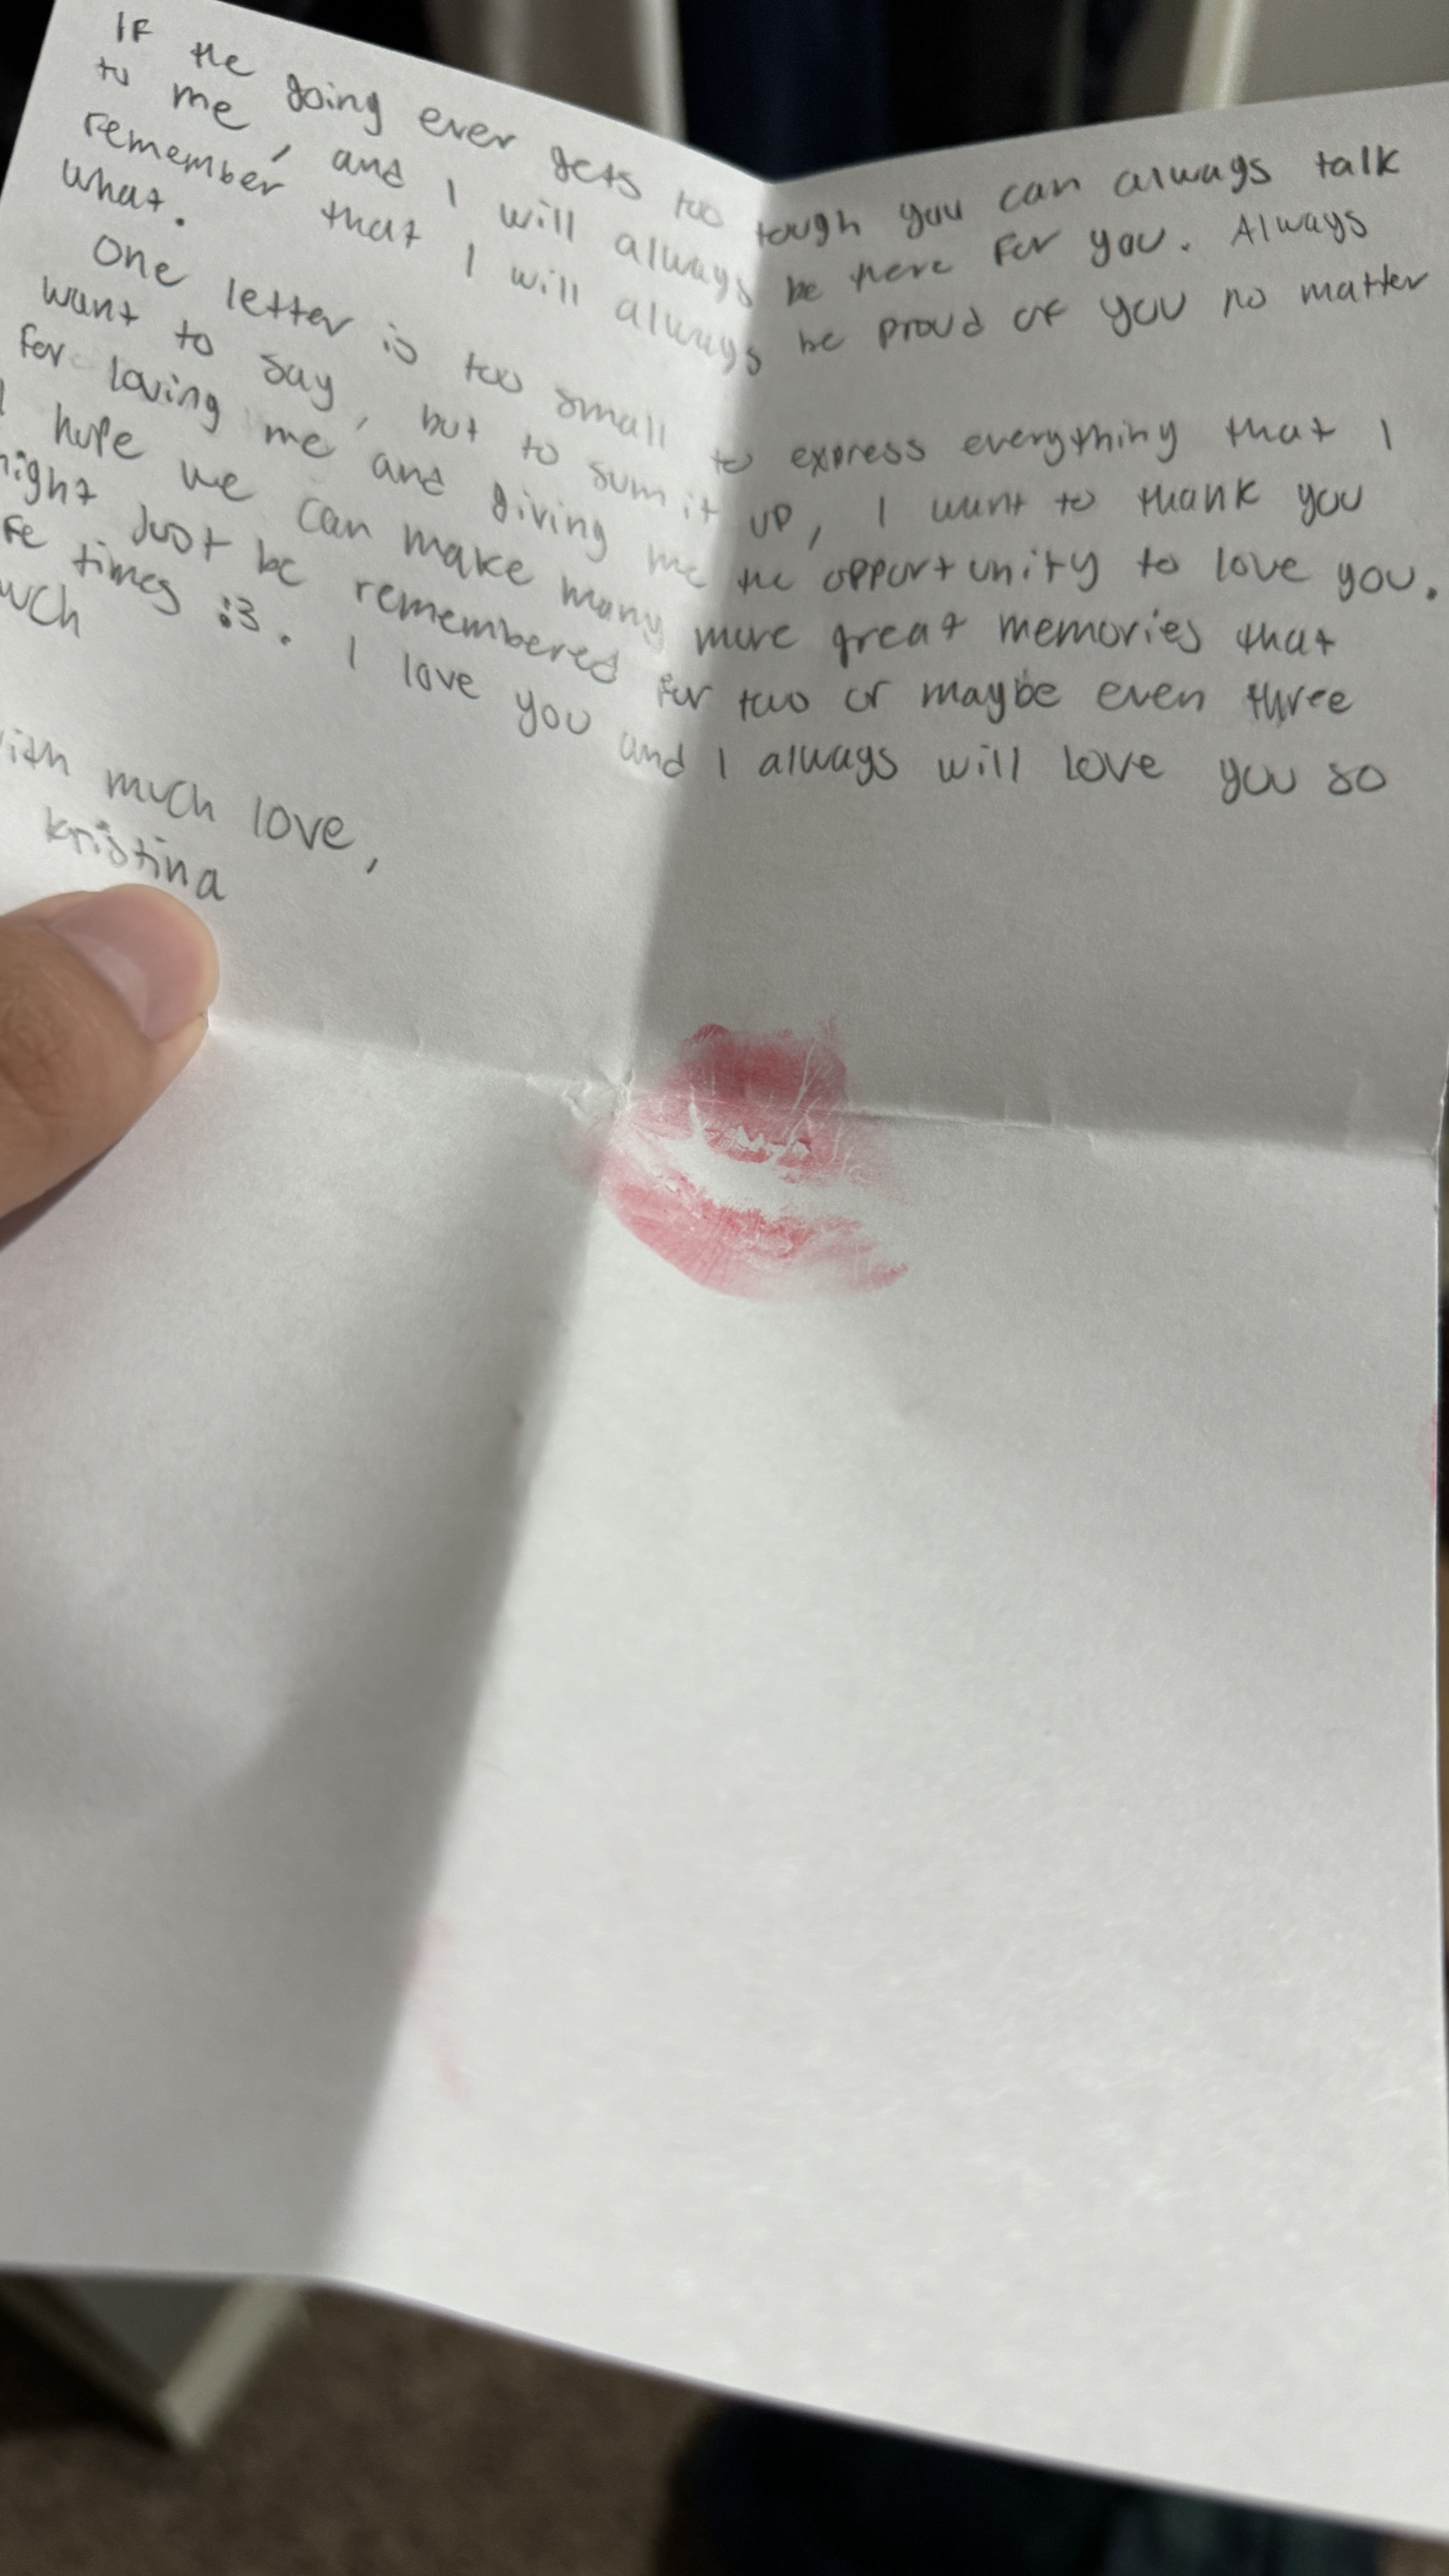 If the going ever gets too tough you can always talk
to me, and I will always be here for you. Always
remember that I will always be proud of you no matter
what.
One letter is too small to express everything that I
want to say, but to sum it up, I want to thank you
for loving me and giving me the opportunity to love you.
I hope we can make many more great memories that
might just be remembered for two or maybe even three
times :3. I love you and I always will love you so
much
with much love,
kristina